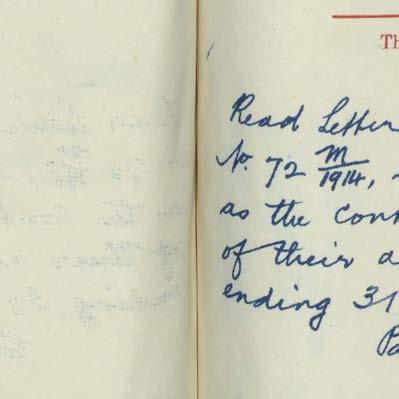 Th
Read Letter
No. 72 M/1914,
as the con
of their a
ending 31
Pa